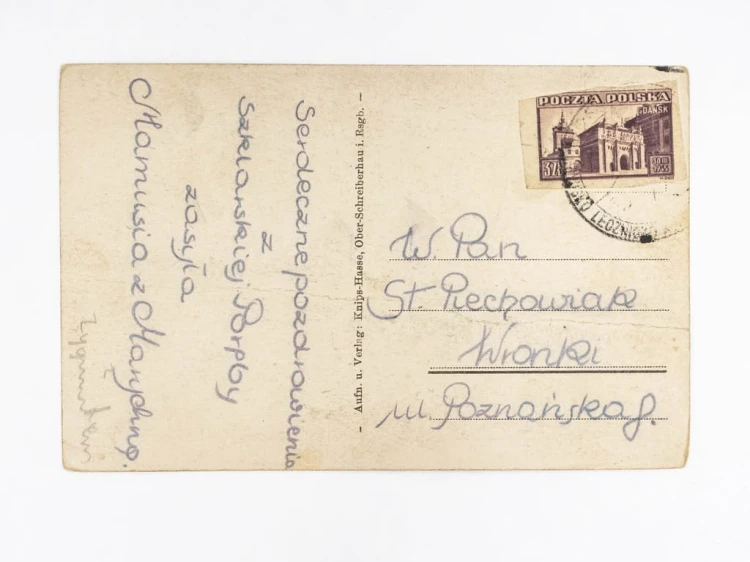 Serdeczne pozdrowienia
z
Szklarskiej Poręby
zasyła
Mamusia z Marychną.
Zygmuntem
- Aufn. u. Verlag: Knips-Hasse, Ober-Schreiberhau i. Rsgb. -
POCZTA POLSKA
GDAŃSK
30 III
1945
3 ZŁ
LECZNI
W. Pan
St. Piechowiak
Wronki
ul. Poznańska 9.